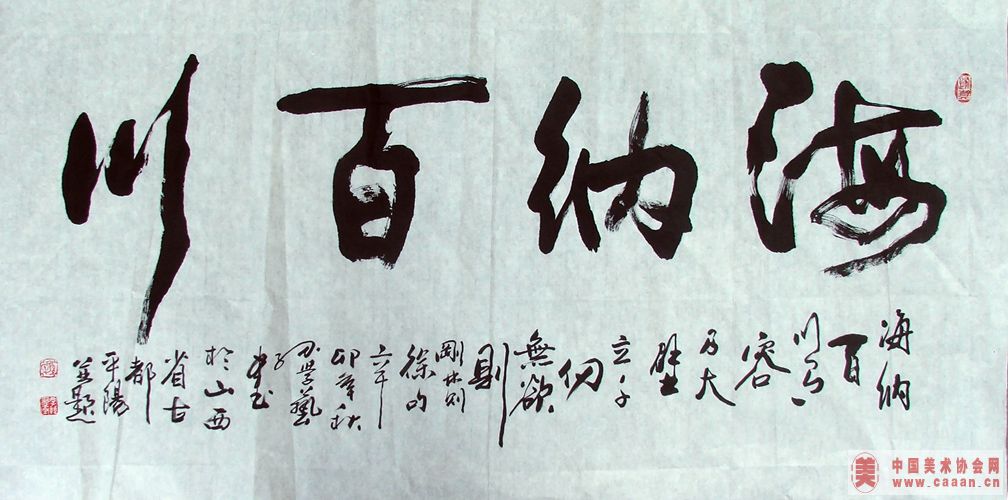 海纳百川
海纳
百
川有
容
乃大
壁
立千
仞
無欲
則
剛林则
徐句
卯年秋
學藝
书
於山西
省古
都
平陽
並題
中国美术协会网
www.caaan.cn
美